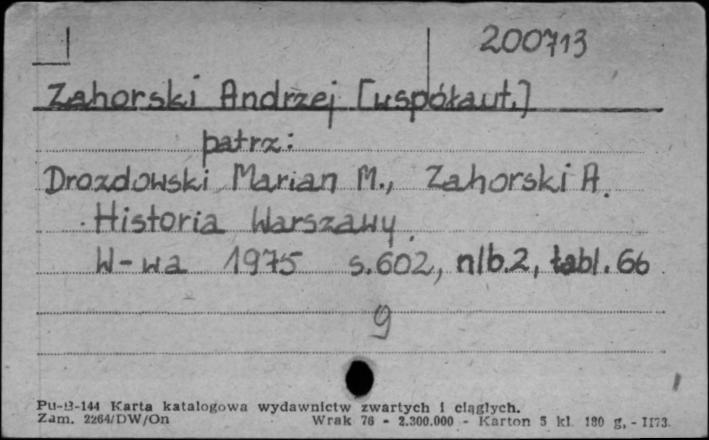 200713
Zahorski Andrzej [współaut.]
patrz:
Drozdowski Marian M., Zahorski A.
Historia Warszawy.
W-wa 1975 s.602, nlb.2, tabl.66
g
Pu-B-144 Karta katalogowa wydawnictw zwartych i ciągłych.
Zam. 2264/DW/On Wrak 76 - 2.300.000 - Karton 5 kl. 180 g,-